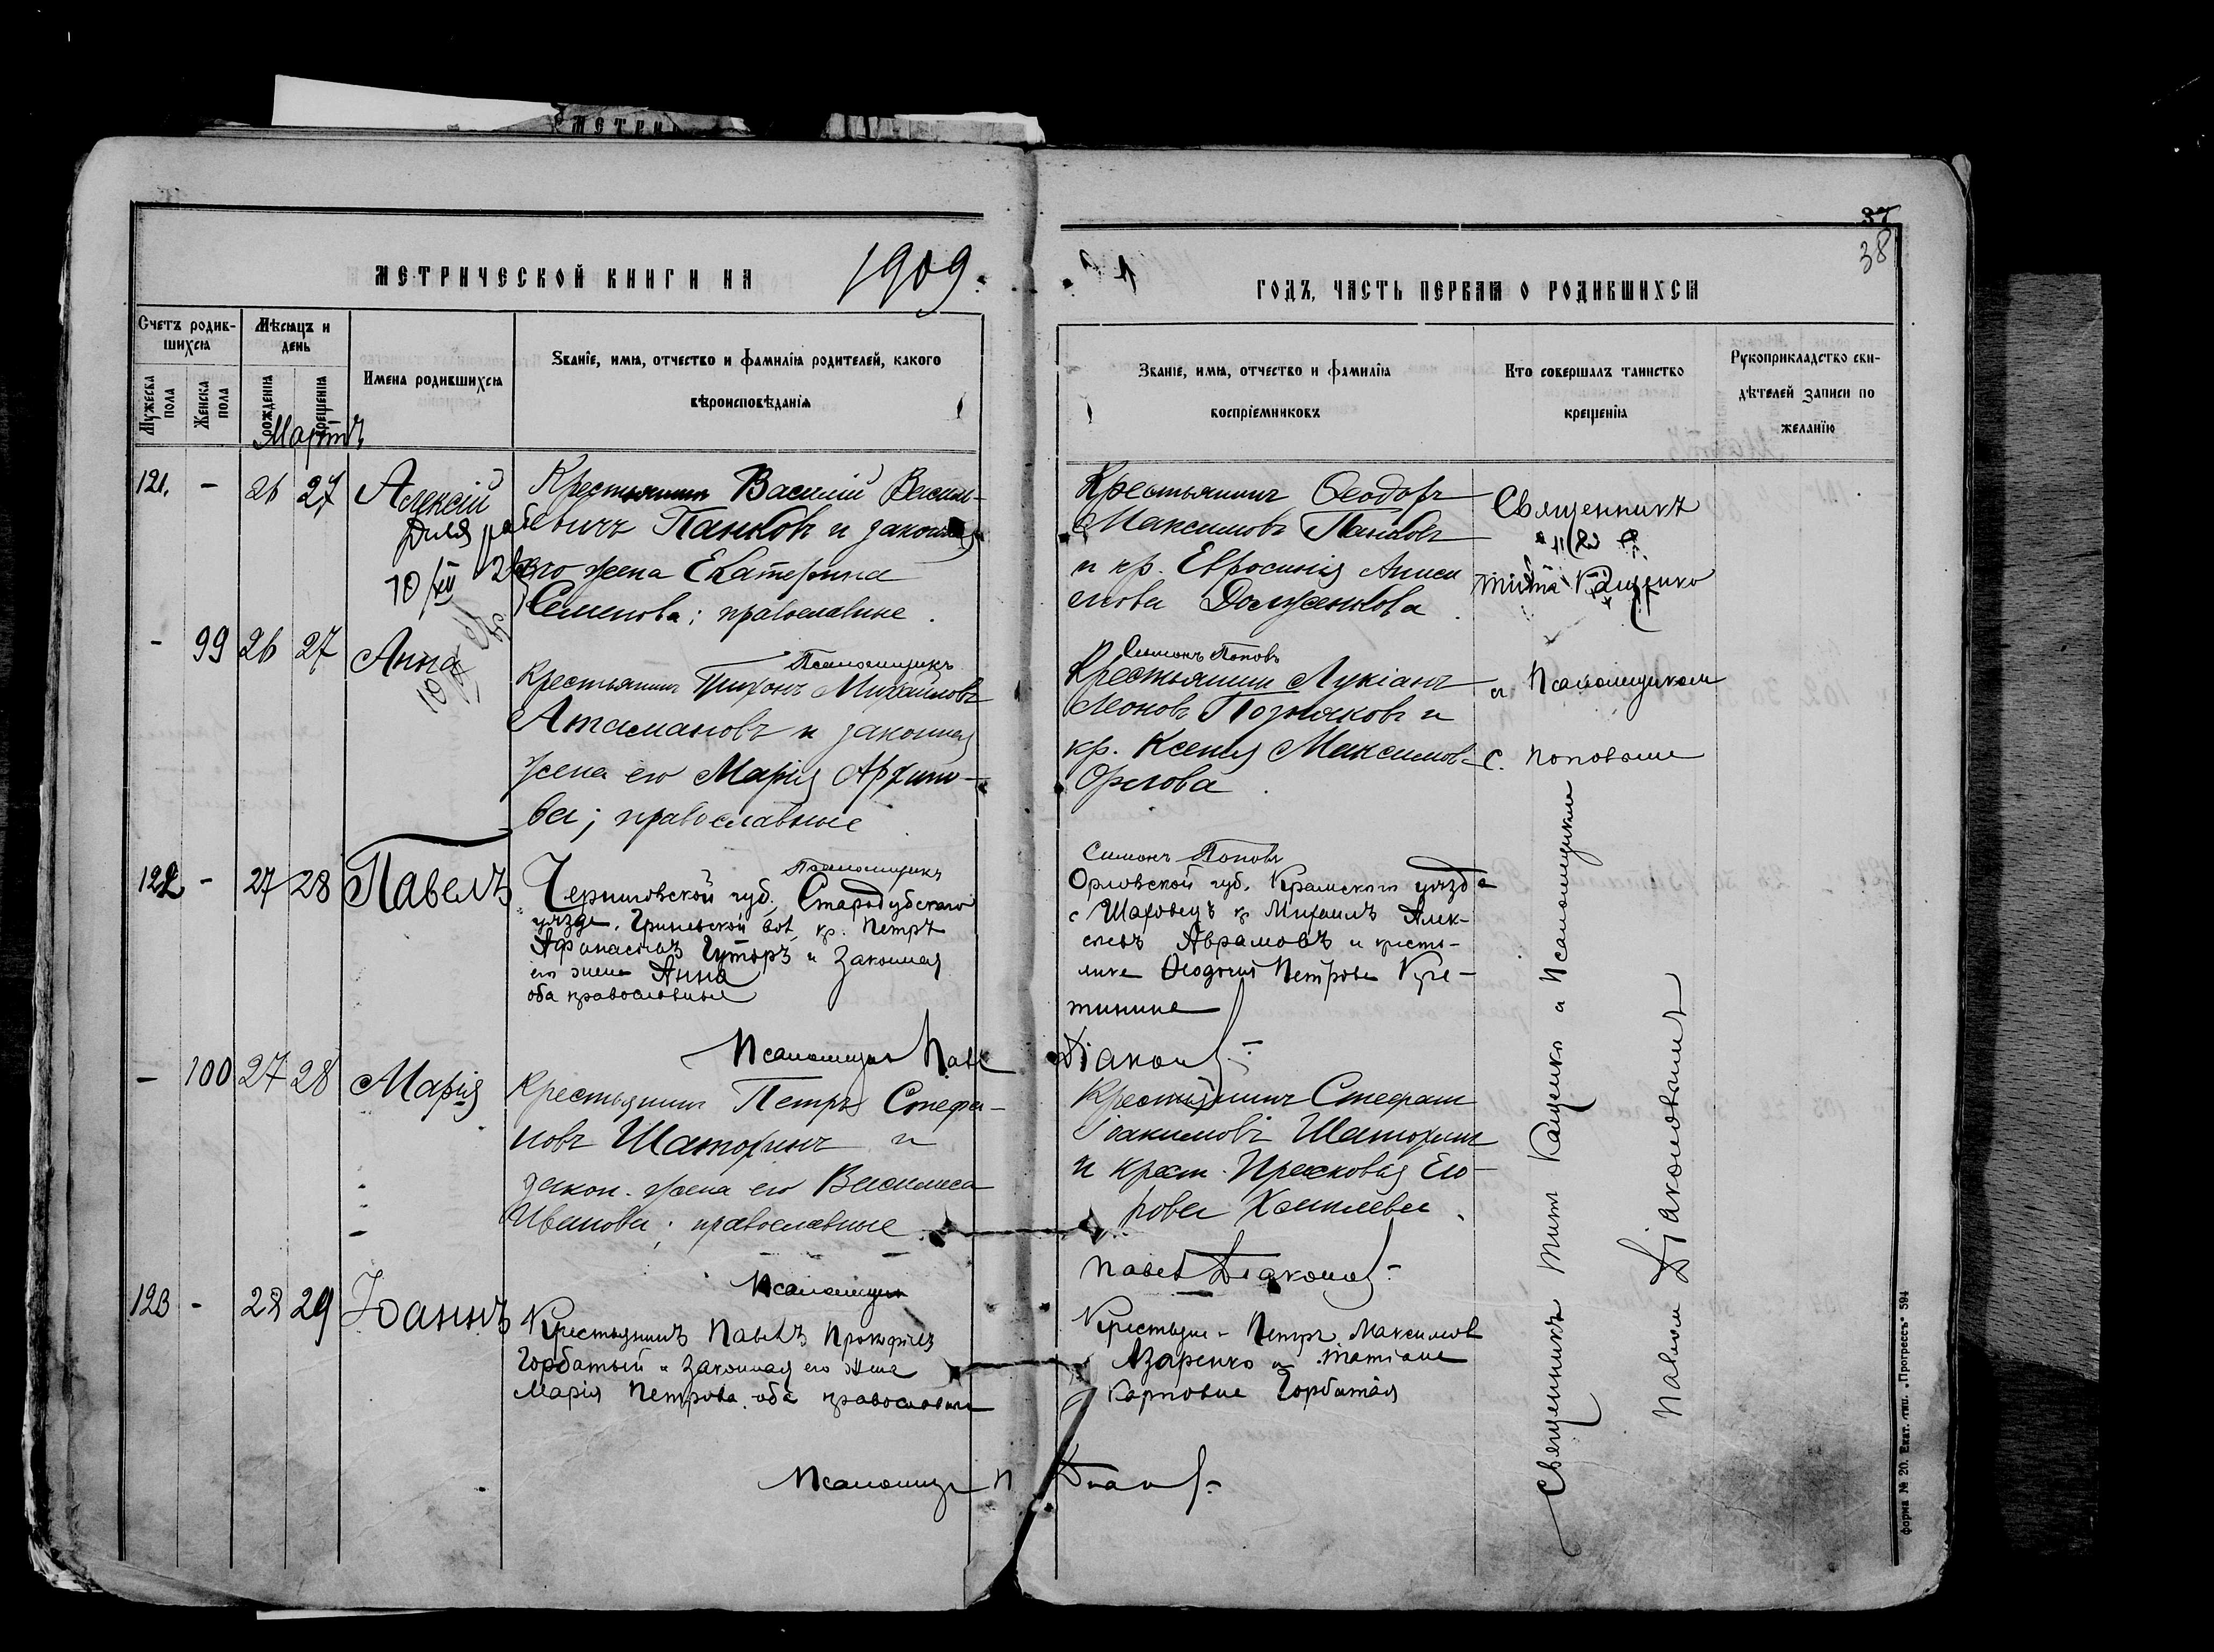 37
38
МЕТРИЧЕСКОЙ КНИГИ НА 1909.
ГОДЪ, ЧАСТЬ ПЕРВАЯ О РОДИВШИХСЯ
Счетъ родив-
шихся
Мужеска пола
Женска пола
Мѣсяцъ и
день
рожденія
крещенія
Имена родившихся
Званіе, имя, отчество и фамилія родителей, какого
вѣроисповѣданія
Званіе, имя, отчество и фамилія
воспріемниковъ
Кто совершалъ таинство
крещенія
Рукоприкладство сви-
дѣтелей записи по
желанію
Мартъ
121. - 26 27 Алексій
10/XII
Крестьянинъ Василій Василь-
евичъ Панковъ и законная
его жена Екатерина
Семенова; православные.
Крестьянинъ Ѳеодоръ
Максимовъ Панковъ
и кр. Евфросинія Аниси
мова Долженкова.
Священникъ
Титъ Кащенко
Псаломщикъ
Симонъ Поповъ
- 99 26 27 Анна
Крестьянинъ Тихонъ Михайловъ
Атамановъ и законная
жена его Марія Архипо-
ва; православные
Крестьянинъ Лукіанъ
Леоновъ Позняковъ и
кр. Ксенія Максимов.
Орлова.
и Псаломщикомъ
С. Поповымъ
Псаломщикъ
Симонъ Поповъ
122 - 27 28 Павелъ
Черниговской губ. Стародубскаго
уѣзда, Гриневской вол. кр. Петръ
Афанасьевъ Гуторъ и законная
его жена Анна
оба православные
Орловской губ. Кромского уѣзда
с Шаховецъ кр Михаилъ Алек-
сѣевъ Аврамовъ и кресть-
янка Ѳеодосія Петрова
Псаломщикъ Павелъ Діаконовъ
- 100 27 28 Марія
Крестьянинъ Петръ Стефа-
новъ Шаторинъ и
закон. жена его Василиса
Иванова; православные
Крестьянинъ Стефанъ
Іоакимовъ Шаторинъ
и крест. Прасковія Его-
рова
Псаломщикъ
Павелъ Діаконовъ
123 - 28 29 Іоаннъ
Крестьянинъ Павелъ Прокофіевъ
Горбатый и законная его жена
Марія Петрова. оба православные
Крестьяне - Петръ Максимовъ
Азаренко и Татіана
Карповна Горбатая
Псаломщикъ П Діаконовъ
Священникъ Титъ Кащенко и Псаломщикомъ
Павломъ Діаконовымъ
форма № 20. Екат. тип. „Прогрессъ“ 594